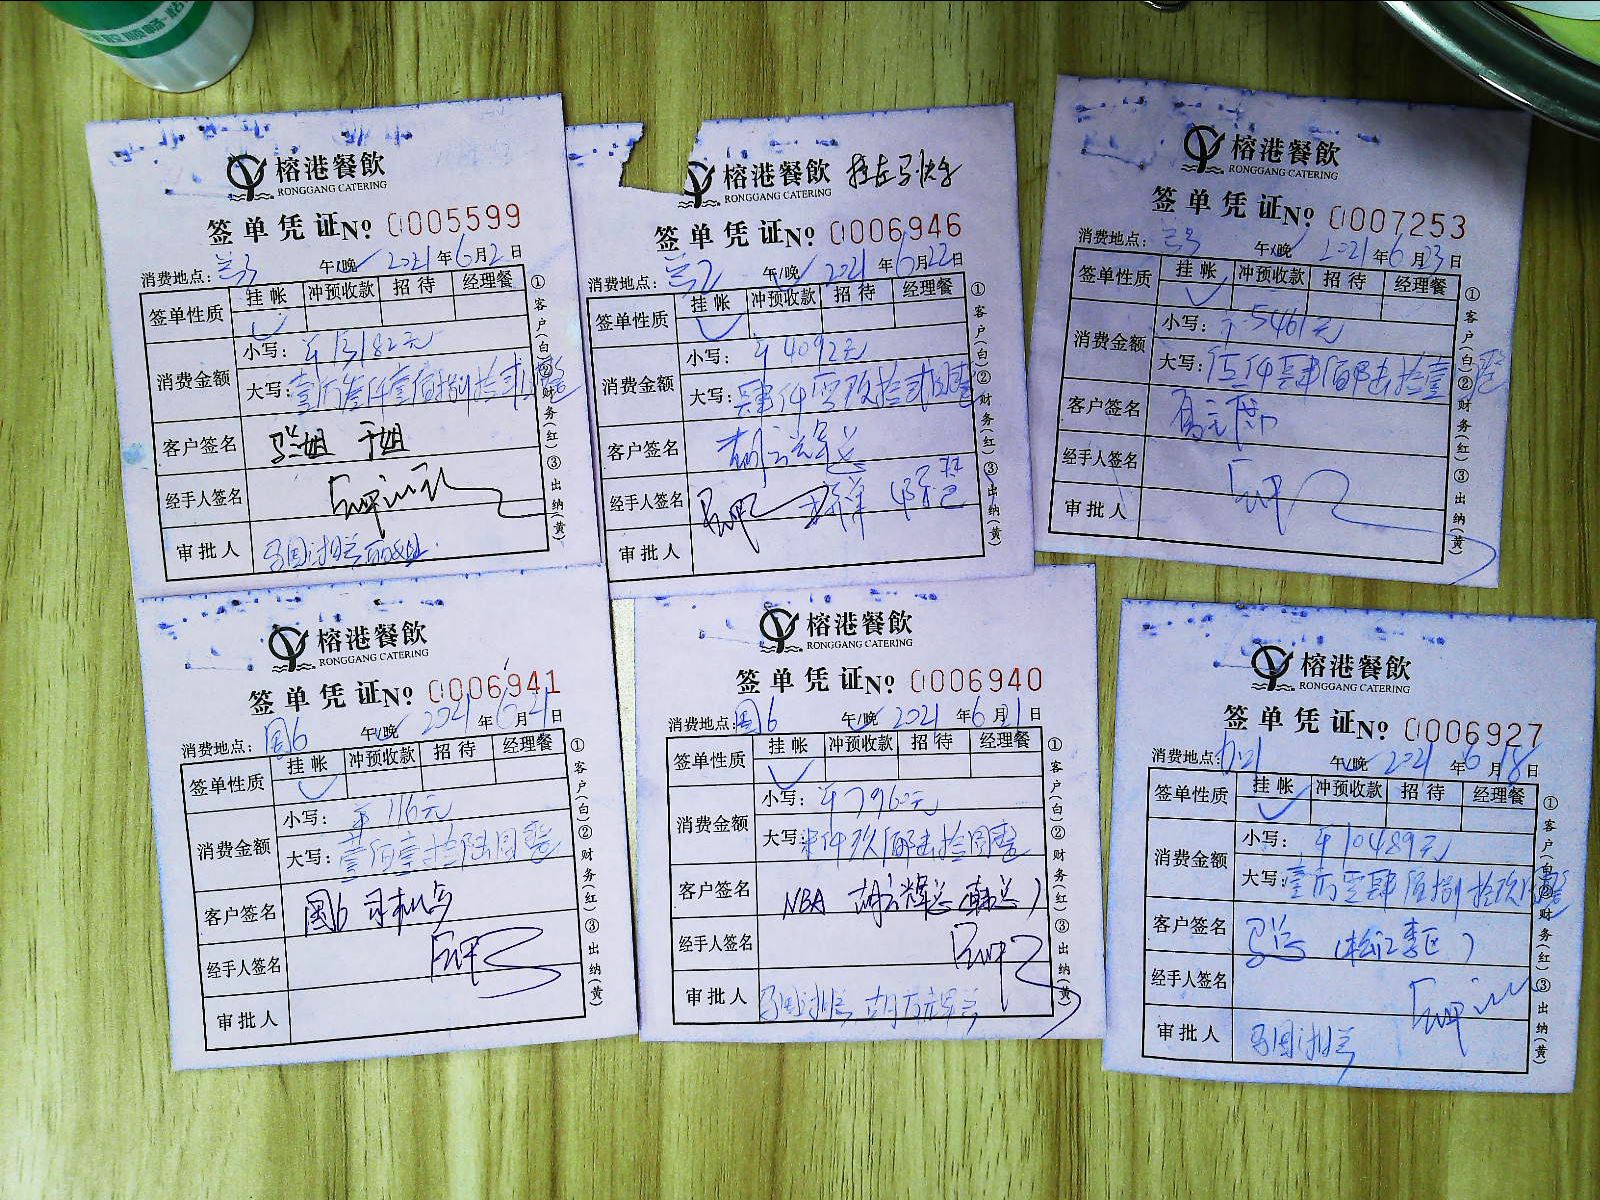 榕港餐飲
RONGGANG CATERING
签单凭证№ 0005599
消费地点:兰3 午/晚 2021年6月2日
签单性质 挂帐 冲预收款 招待 经理餐
消费金额
小写:¥13182元
大写:壹万叁仟壹佰捌拾贰圆整
客户签名
经手人签名
审批人
①客户(白)②财务(红)③出纳(黄)
榕港餐飲
RONGGANG CATERING
签单凭证№ 0006946
消费地点:兰2 午/晚 2021年6月22日
签单性质 挂帐 冲预收款 招待 经理餐
消费金额
小写:¥4092元
大写:肆仟零玖拾贰圆整
客户签名 胡云辉总
经手人签名
审批人
①客户(白)②财务(红)③出纳(黄)
榕港餐飲
RONGGANG CATERING
签单凭证№ 0007253
消费地点:兰3 午/晚 2021年6月23日
签单性质 挂帐 冲预收款 招待 经理餐
消费金额
小写:¥5461元
大写:伍仟肆佰陆拾壹圆整
客户签名
经手人签名
审批人
①客户(白)②财务(红)③出纳(黄)
榕港餐飲
RONGGANG CATERING
签单凭证№ 0006941
消费地点:国6 午/晚 2021年6月21日
签单性质 挂帐 冲预收款 招待 经理餐
消费金额
小写:¥116元
大写:壹佰壹拾陆圆整
客户签名 国6 司机
经手人签名
审批人
①客户(白)②财务(红)③出纳(黄)
榕港餐飲
RONGGANG CATERING
签单凭证№ 0006940
消费地点:国6 午/晚 2021年6月21日
签单性质 挂帐 冲预收款 招待 经理餐
消费金额
小写:¥7960元
大写:柒仟玖佰陆拾圆整
客户签名 NBA 胡云辉总(韩总)
经手人签名
审批人
①客户(白)②财务(红)③出纳(黄)
榕港餐飲
RONGGANG CATERING
签单凭证№ 0006927
消费地点: 午/晚 2021年6月18日
签单性质 挂帐 冲预收款 招待 经理餐
消费金额
小写:¥10489元
大写:壹万零肆佰捌拾玖圆整
客户签名 马总
经手人签名
审批人
①客户(白)②财务(红)③出纳(黄)